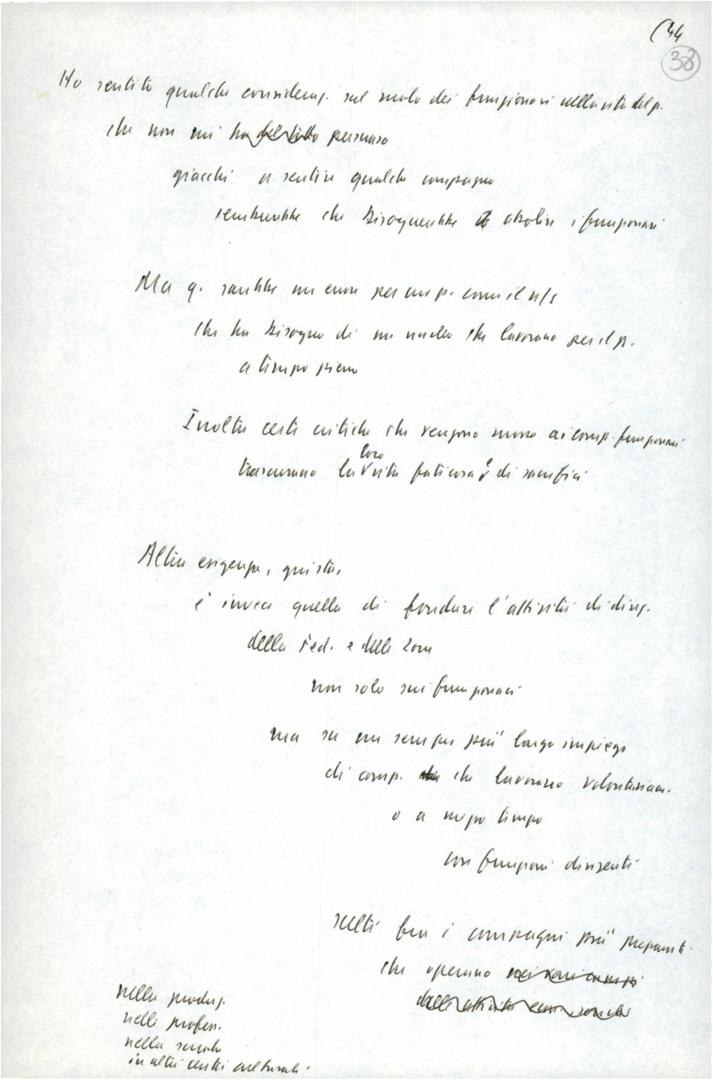 (44
38
Ho sentito qualche consideraz. sul ruolo dei funzionari nella vita del p.
che non mi ha del tutto persuaso
giacché a sentire qualche compagno
sembrerebbe che bisognerebbe abolire i funzionari
Ma q. sarebbe un errore per un p. come il n/s
che ha bisogno di un nucleo che lavorano per il p.
a tempo pieno
Inoltre certe critiche che vengono mosse ai comp. funzionari
trascurano la loro vita faticosa e di sacrifici
Altra esigenza, giusta,
è invece quella di fondare l'attività di direz.
della Fed. e delle Zone
non solo sui funzionari
ma su un sempre più largo impiego
di comp. che lavorano volontariam.
o a mezzo tempo
con funzioni dirigenti
scelti fra i compagni più preparati
che operano nei vari campi
dell'attività econ. sociale
nella produz.
nelle profess.
nella scuola
in altri centri culturali.